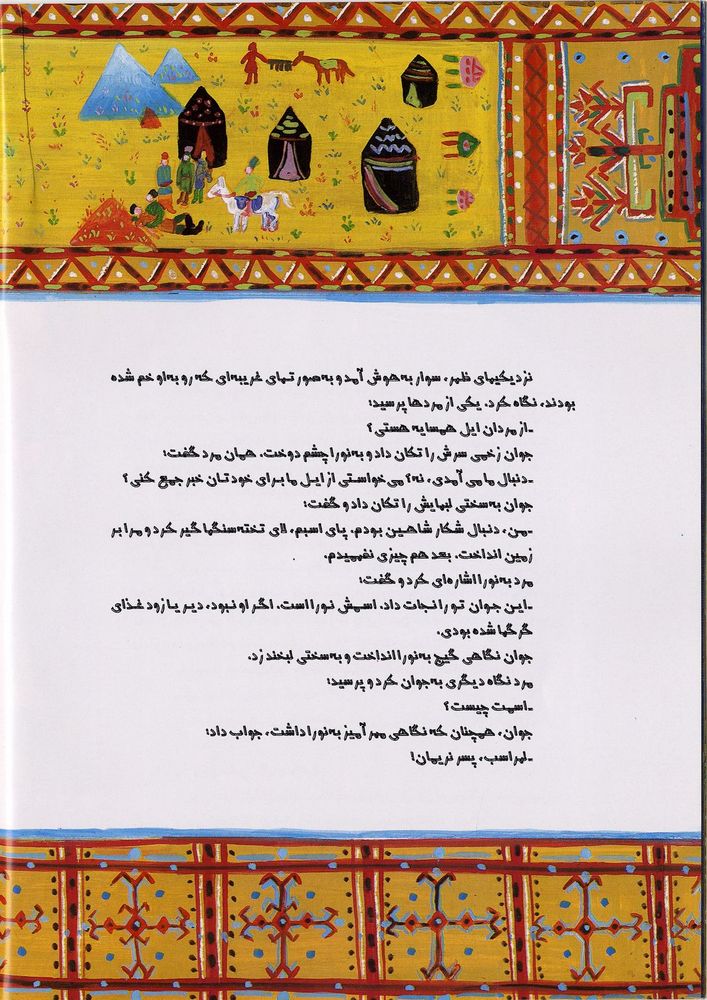 نزدیکیهای ظهر، سوار به‌هوش آمد و به‌صورتهای غریبه‌ای که رو به‌او خم شده
بودند، نگاه کرد. یکی از مردها پرسید:
ـ از مردان ایل همسایه هستی؟
جوان زخمی سرش را تکان داد و به‌نورا چشم دوخت. همان مرد گفت:
ـ دنبال ما می‌آمدی، نه؟ می‌خواستی از ایل ما برای خودتان خبر جمع کنی؟
جوان به‌سختی لبهایش را تکان داد و گفت:
ـ من، دنبال شکار شاهین بودم. پای اسبم، لای تخته‌سنگها گیر کرد و مرا بر
زمین انداخت. بعد هم چیزی نفهمیدم.
مرد به‌نورا اشاره‌ای کرد و گفت:
ـ این جوان تو را نجات داد. اسمش نورا است. اگر او نبود، دیر یا زود غذای
گرگها شده بودی.
جوان نگاهی گیج به‌نورا انداخت و به‌سختی لبخند زد.
مرد نگاه دیگری به‌جوان کرد و پرسید:
ـ اسمت چیست؟
جوان، همچنان که نگاهی مهرآمیز به‌نورا داشت، جواب داد:
ـ لهراسب، پسر نریمان!